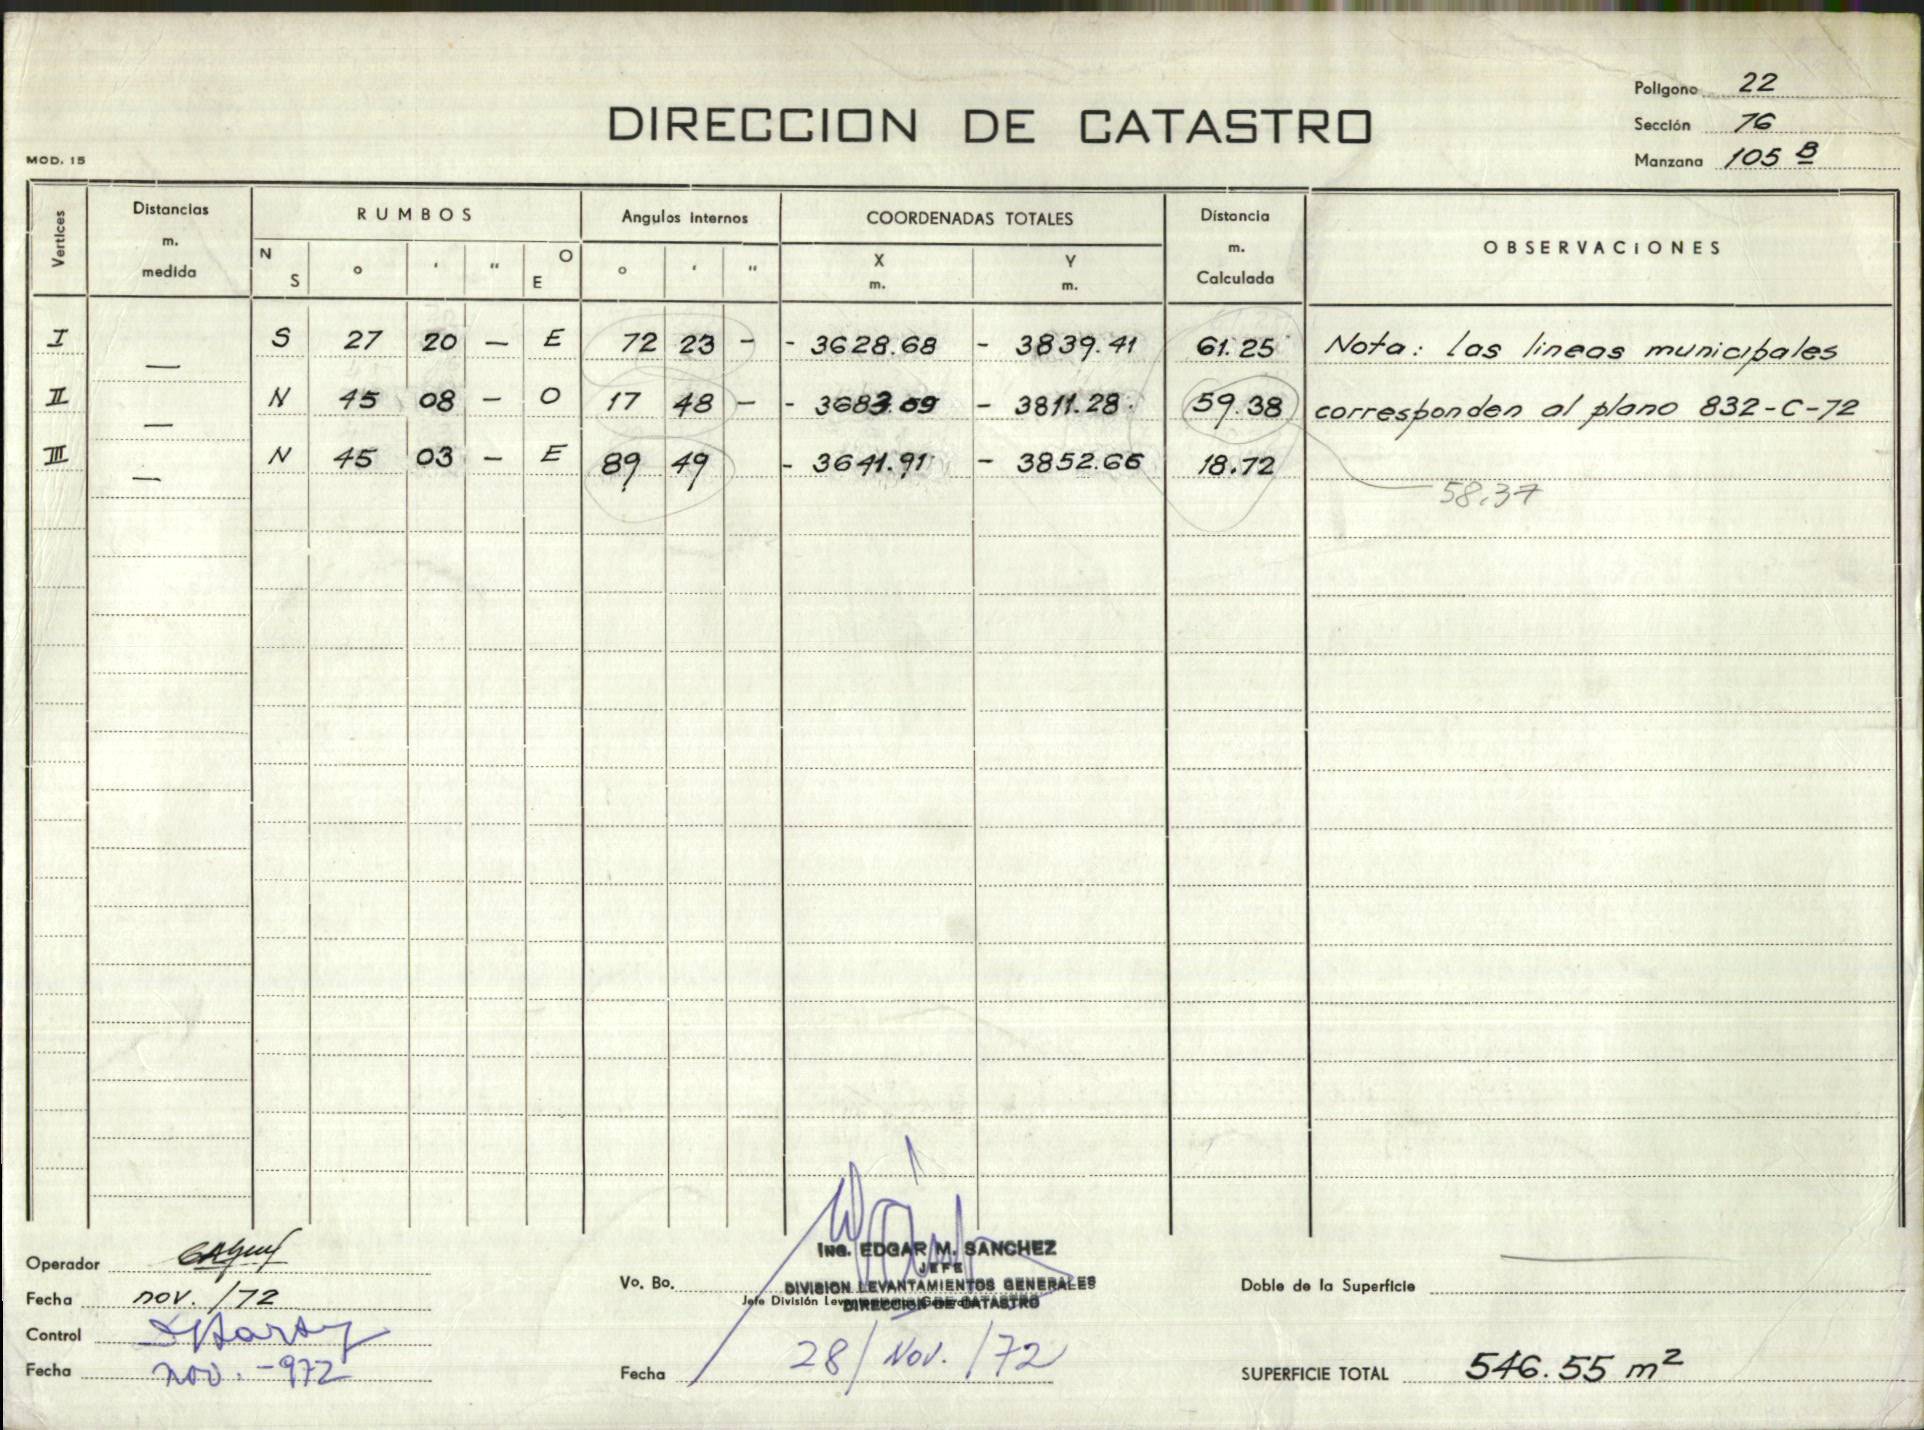 Polígono 22
DIRECCION DE CATASTRO
Sección 76
MOD. 15
Manzana 105 B
Vertices
Distancias m. medida
RUMBOS
Angulos internos
COORDENADAS TOTALES
Distancia m. Calculada
OBSERVACIONES
N S ° ' " O E
° ' "
X m.
Y m.
I — S 27 20 — E 72 23 - - 3628.68 - 3839.41 61.25 Nota: las lineas municipales
II — N 45 08 — O 17 48 - - 3683.09 - 3811.28 59.38 corresponden al plano 832-C-72
III — N 45 03 — E 89 49 - 3641.91 - 3852.66 18.72
58.37
Operador
Fecha nov. /72
Control
Fecha nov. -972
Vo. Bo.
Ing. EDGAR M. SANCHEZ
JEFE
DIVISION LEVANTAMIENTOS GENERALES
Jefe División
DIRECCION DE CATASTRO
Fecha 28/ Nov. /72
Doble de la Superficie —
SUPERFICIE TOTAL 546.55 m²